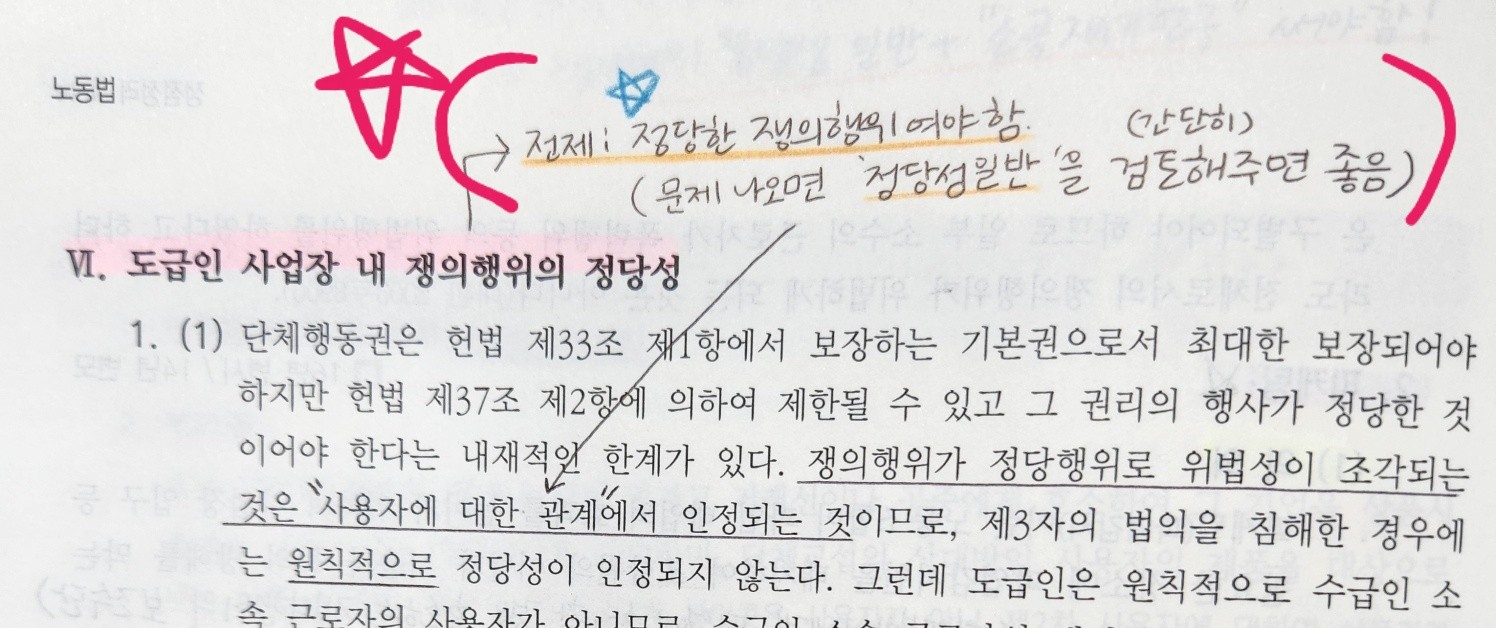 노동법
→ 전제: 정당한 쟁의행위여야 함. (간단히)
(문제 나오면 '정당성일반'을 검토해주면 좋음)
Ⅵ. 도급인 사업장 내 쟁의행위의 정당성
1. (1) 단체행동권은 헌법 제33조 제1항에서 보장하는 기본권으로서 최대한 보장되어야
하지만 헌법 제37조 제2항에 의하여 제한될 수 있고 그 권리의 행사가 정당한 것
이어야 한다는 내재적인 한계가 있다. 쟁의행위가 정당행위로 위법성이 조각되는
것은 "사용자에 대한 관계"에서 인정되는 것이므로, 제3자의 법익을 침해한 경우에
는 원칙적으로 정당성이 인정되지 않는다. 그런데 도급인은 원칙적으로 수급인 소
속 근로자의 사용자가 아니므로